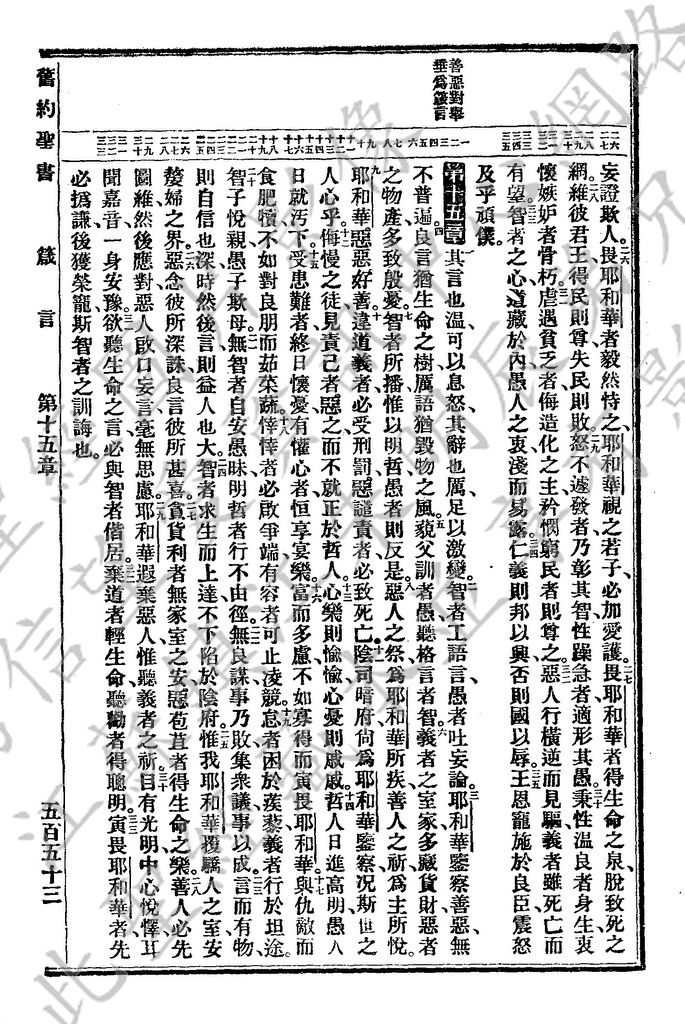 善惡對舉
垂為箴言
妄證欺人畏耶和華者毅然恃之耶和華視之若子必加愛護畏耶和華者得生命之泉脫致死之
網維彼君王得民則尊失民則敗怒不遽發者乃彰其智性躁急者適形其愚秉性溫良者身生衷
懷嫉妒者骨朽虐遇貧乏者侮造化之主矜憫窮民者則尊之惡人行橫逆而見驅義者雖死亡而
有望智者之心道藏於內愚人之衷淺而易露仁義則邦以興否則國以辱王恩寵施於良臣震怒
及乎頑僕
第十五章其言也溫可以息怒其辭也厲足以激變智者工語言愚者吐妄論耶和華鑒察善惡無
不普遍良言猶生命之樹厲語猶毀物之風藐父訓者愚聽格言者智義者之室家多藏貨財惡者
之物產多致殷憂智者所播惟以明哲愚者則反是惡人之祭為耶和華所疾善人之祈為主所悅
耶和華惡惡好善違道義者必受刑罰惡譴責者必致死亡陰司暗府尚為耶和華鑒察況斯世之
人心乎侮慢之徒見責己者惡之而不就正於哲人心樂則愉愉心憂則戚戚哲人日進高明愚人
日就污下受患難者終日懷憂有懽心者恒享宴樂富而多慮不如寡得而寅畏耶和華與仇敵而
食肥犢不如對良朋而茹菜蔬悻悻者必啟爭端有容者可止凌競怠者困於蒺藜義者行於坦途
智子悅親愚子欺母無智者自安愚昧明哲者行不由徑無良謀事乃敗集眾議事以成言而有物
則自信也深時然後言則益人也大智者求生而上達不下陷於陰府惟我耶和華覆驕人之室安
嫠婦之界惡念彼所深誅良言彼所甚喜貪貨利者無家室之安惡苞苴者得生命之樂善人必先
圖維然後應對惡人啟口妄言毫無思慮耶和華遐棄惡人惟聽義者之祈目有光明中心悅懌耳
聞嘉音一身安豫欲聽生命之言必與智者偕居棄道者輕生命聽勸者得聰明寅畏耶和華者先
必撝謙後獲榮寵斯智者之訓誨也
舊約聖書 箴言 第十五章 五百五十三